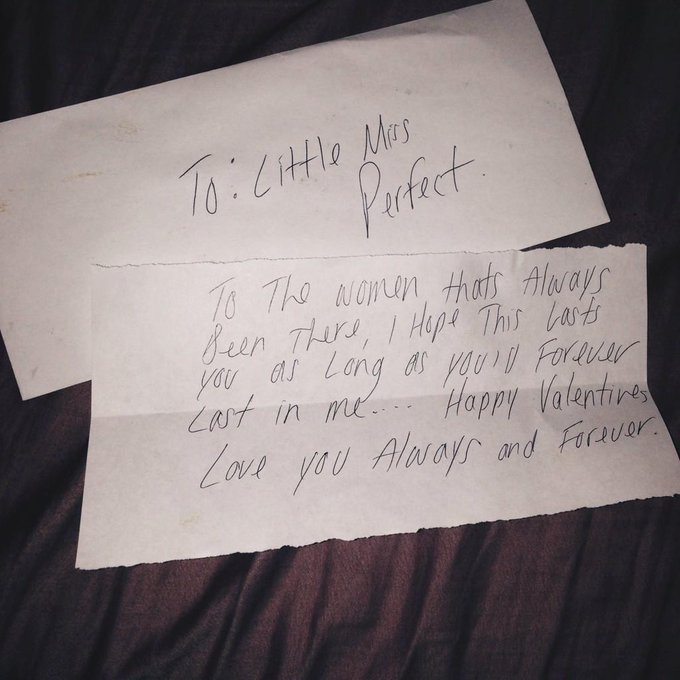 To: Little Miss
Perfect.
To The women thats Always
Been There, I Hope This Lasts
you as Long as you'll Forever
Last in me.... Happy Valentines
Love you Always and Forever.